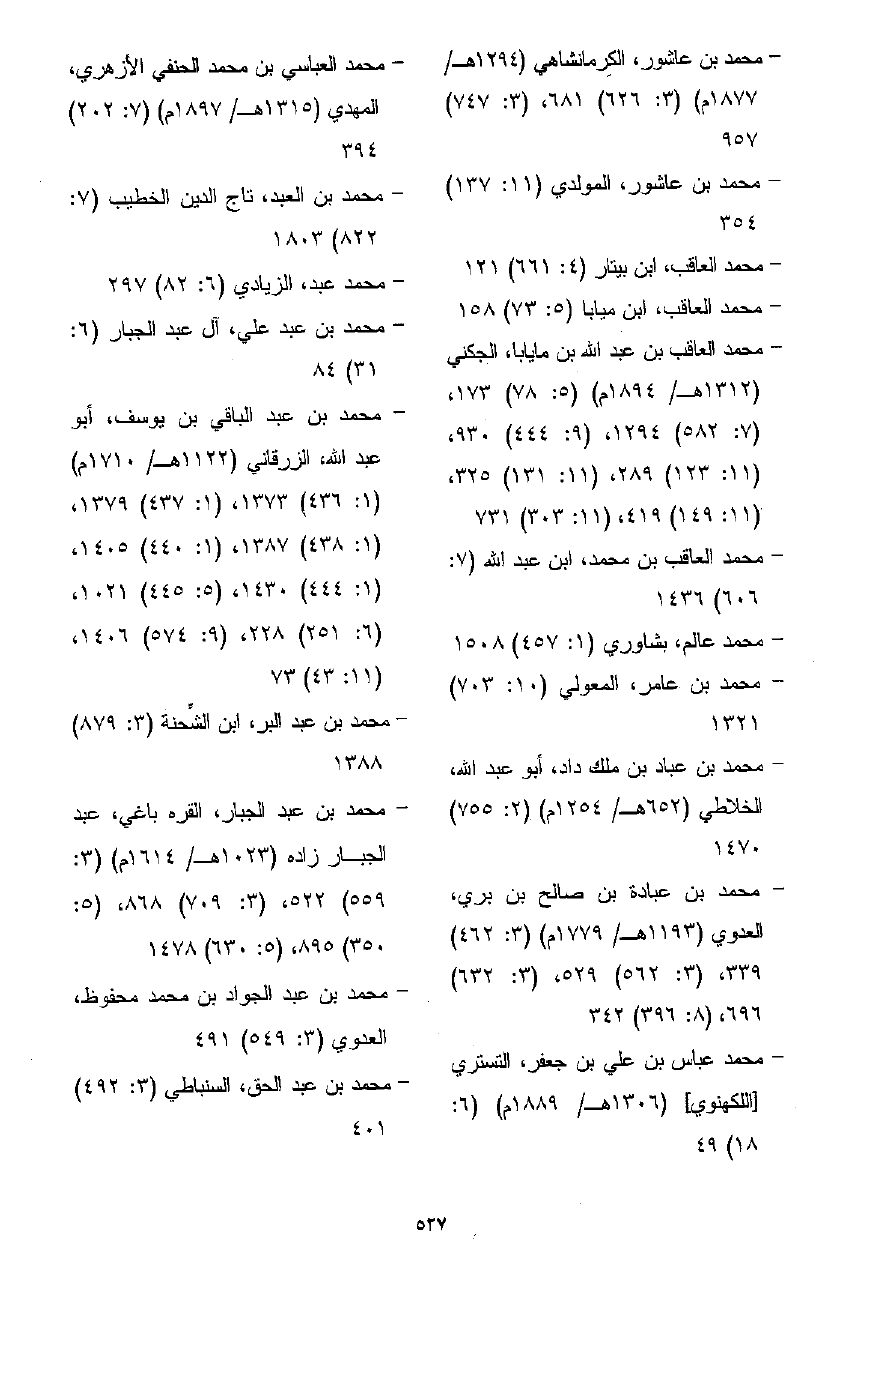 - محمد بن عاشور، الكرمانشاهي (١٢٩٤هـ/
١٨٧٧م) (٣: ٦٢٦) ٦٨١، (٣: ٧٤٧)
٩٥٧
- محمد بن عاشور، المولدي (١١: ١٣٧)
٣٥٤
- محمد العاقب، ابن بيتار (٤: ٦٦١) ١٢١
- محمد العاقب، ابن ميابا (٥: ٧٣) ١٥٨
- محمد العاقب بن عبد الله بن مايابا، الجكني
(١٣١٢هـ/ ١٨٩٤م) (٥: ٧٨) ١٧٣،
(٧: ٥٨٢) ١٢٩٤، (٩: ٤٤٤) ٩٣٠،
(١١: ١٢٣) ٢٨٩، (١١: ١٣١) ٣٢٥،
(١١: ١٤٩) ٤١٩، (١١: ٣٠٣) ٧٣١
- محمد العاقب بن محمد، ابن عبد الله (٧:
٦٠٦) ١٤٣٦
- محمد عالم، بشاوري (١: ٤٥٧) ١٥٠٨
- محمد بن عامر، المعولي (١٠: ٧٠٣)
١٣٢١
- محمد بن عباد بن ملك داد، أبو عبد الله،
الخلاطي (٦٥٢هـ/ ١٢٥٤م) (٢: ٧٥٥)
١٤٧٠
- محمد بن عبادة بن صالح بن بري،
العدوي (١١٩٣هـ/ ١٧٧٩م) (٣: ٤٦٢)
٣٣٩، (٣: ٥٦٢) ٥٢٩، (٣: ٦٣٢)
٦٩٦، (٨: ٣٩٦) ٣٤٢
- محمد عباس بن علي بن جعفر، التستري
[اللكهنوي] (١٣٠٦هـ/ ١٨٨٩م) (٦:
١٨) ٤٩
- محمد العباسي بن محمد الحنفي الأزهري،
المهدي (١٣١٥هـ/ ١٨٩٧م) (٧: ٢٠٢)
٣٩٤
- محمد بن العبد، تاج الدين الخطيب (٧:
٨٢٢) ١٨٠٣
- محمد عبد، الزيادي (٦: ٨٢) ٢٩٧
- محمد بن عبد علي، آل عبد الجبار (٦:
٣١) ٨٤
- محمد بن عبد الباقي بن يوسف، أبو
عبد الله، الزرقاني (١١٢٢هـ/ ١٧١٠م)
(١: ٤٣٦) ١٣٧٣، (١: ٤٣٧) ١٣٧٩،
(١: ٤٣٨) ١٣٨٧، (١: ٤٤٠) ١٤٠٥،
(١: ٤٤٤) ١٤٣٠، (٥: ٤٤٥) ١٠٢١،
(٦: ٢٥١) ٢٢٨، (٩: ٥٧٤) ١٤٠٦،
(١١: ٤٣) ٧٣
- محمد بن عبد البر، ابن الشِّحنة (٣: ٨٧٩)
١٣٨٨
- محمد بن عبد الجبار، القره باغي، عبد
الجبار زاده (١٠٢٣هـ/ ١٦١٤م) (٣:
٥٥٩) ٥٢٢، (٣: ٧٠٩) ٨٦٨، (٥:
٣٥٠) ٨٩٥، (٥: ٦٣٠) ١٤٧٨
- محمد بن عبد الجواد بن محمد محفوظ،
العدوي (٣: ٥٤٩) ٤٩١
- محمد بن عبد الحق، السنباطي (٣: ٤٩٢)
٤٠١
٥٢٧